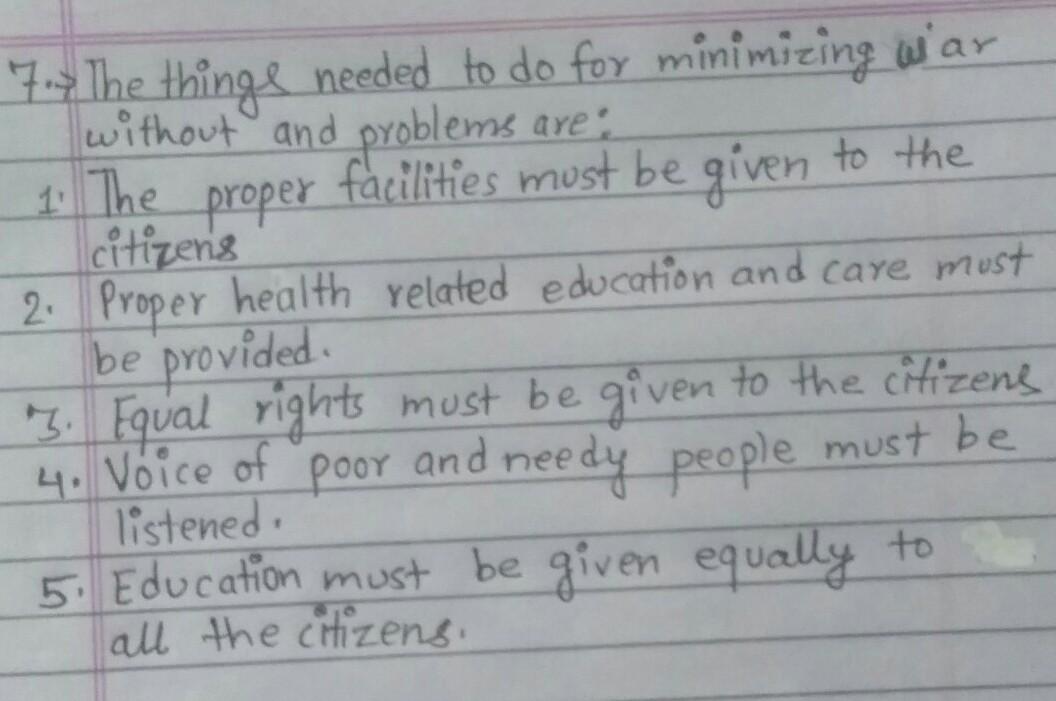 7.→ The things needed to do for minimizing war
without and problems are:
1. The proper facilities must be given to the
citizens
2. Proper health related education and care must
be provided.
3. Equal rights must be given to the citizens
4. Voice of poor and needy people must be
listened.
5. Education must be given equally to
all the citizens.